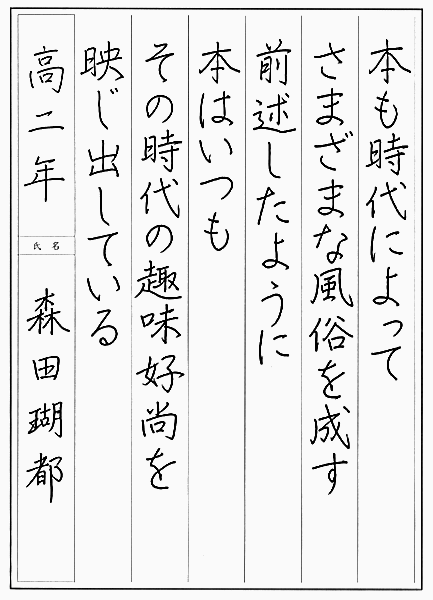 本も時代によって
さまざまな風俗を成す
前述したように
本はいつも
その時代の趣味好尚を
映じ出している
高二年
氏名
森田瑚都